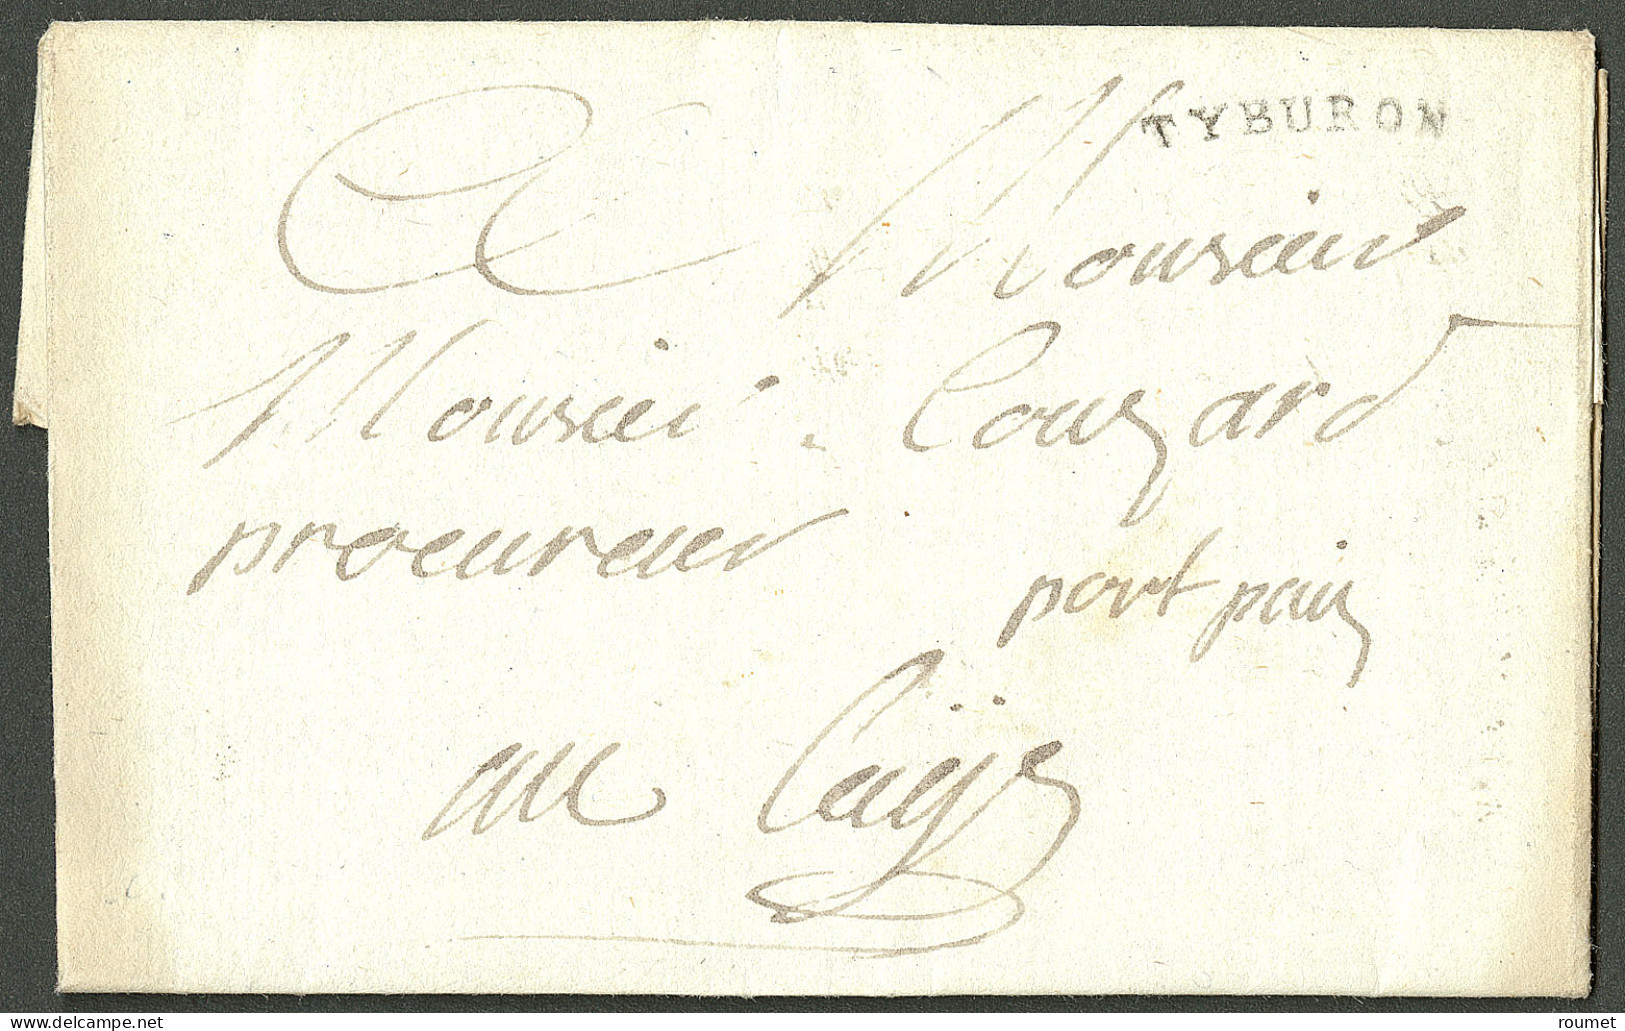 TYBURON
A Monsieur
Monsieur Couzard
procureur
port paiy
au Cayes
delcampe.net
roumet